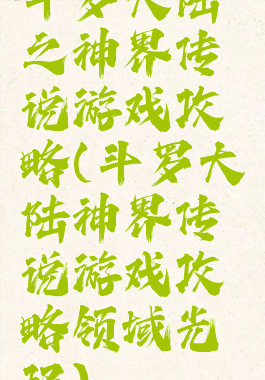 斗罗大陆
之神界传
说游戏攻
略(斗罗大
陆神界传
说游戏攻
略领域先